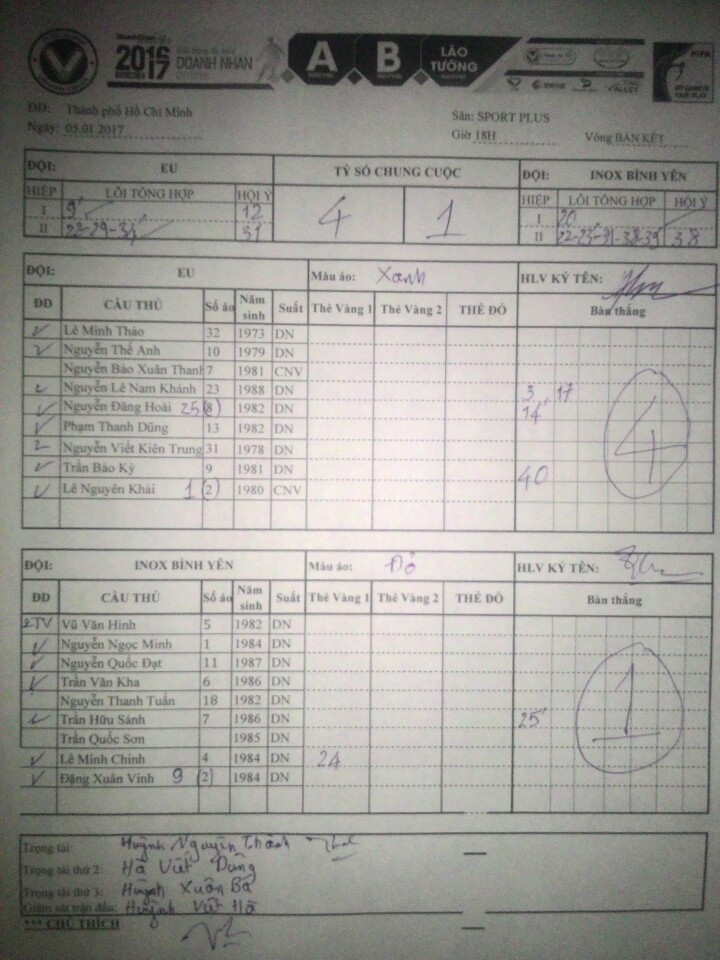 2016 2017 DOANH NHAN A B LÃO TƯỚNG
ĐĐ: Thành phố Hồ Chí Minh
Ngày: 05.01.2017
Sân: SPORT PLUS
Giờ 18H Vòng BÁN KẾT
ĐỘI: EU TỶ SỐ CHUNG CUỘC ĐỘI: INOX BÌNH YÊN
HIỆP LỖI TỔNG HỢP HỘI Ý 4 1 HIỆP LỖI TỔNG HỢP HỘI Ý
I 9' 12 I 20
II 22-29-34 31 II 22-23-31-38-39 38
ĐỘI: EU Màu áo: Xanh HLV KÝ TÊN:
ĐD CẦU THỦ Số áo Năm sinh Suất Thẻ Vàng 1 Thẻ Vàng 2 THẺ ĐỎ Bàn thắng
Lê Minh Thảo 32 1973 DN
Nguyễn Thế Anh 10 1979 DN
Nguyễn Bảo Xuân Thanh 7 1981 CNV
Nguyễn Lê Nam Khánh 23 1988 DN 3, 17
Nguyễn Đăng Hoài 25 (8) 1982 DN 14'
Phạm Thanh Dũng 13 1982 DN
Nguyễn Viết Kiên Trung 31 1978 DN
Trần Bảo Kỳ 9 1981 DN 40
Lê Nguyên Khải 1 (2) 1980 CNV
4
ĐỘI: INOX BÌNH YÊN Màu áo: Đỏ HLV KÝ TÊN:
ĐD CẦU THỦ Số áo Năm sinh Suất Thẻ Vàng 1 Thẻ Vàng 2 THẺ ĐỎ Bàn thắng
Vũ Văn Hinh 5 1982 DN
Nguyễn Ngọc Minh 1 1984 DN
Nguyễn Quốc Đạt 11 1987 DN
Trần Văn Kha 6 1986 DN
Nguyễn Thanh Tuấn 18 1982 DN
Trần Hữu Sánh 7 1986 DN 25'
Trần Quốc Sơn 1985 DN
Lê Minh Chính 4 1984 DN 24
Đặng Xuân Vinh 9 (2) 1984 DN
1
Trọng tài: Huỳnh Nguyễn Thành
Trọng tài thứ 2: Hà Viết Dũng
Trọng tài thứ 3: Huỳnh Xuân Ba
Giám sát trận đấu: Huỳnh Viết Hà
*** CHÚ THÍCH